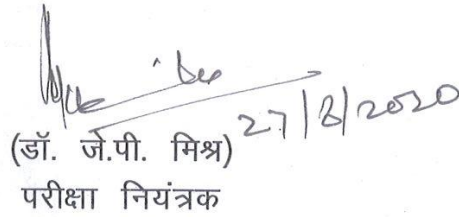 27/8/2020
(डॉ. जे.पी. मिश्र)
परीक्षा नियंत्रक